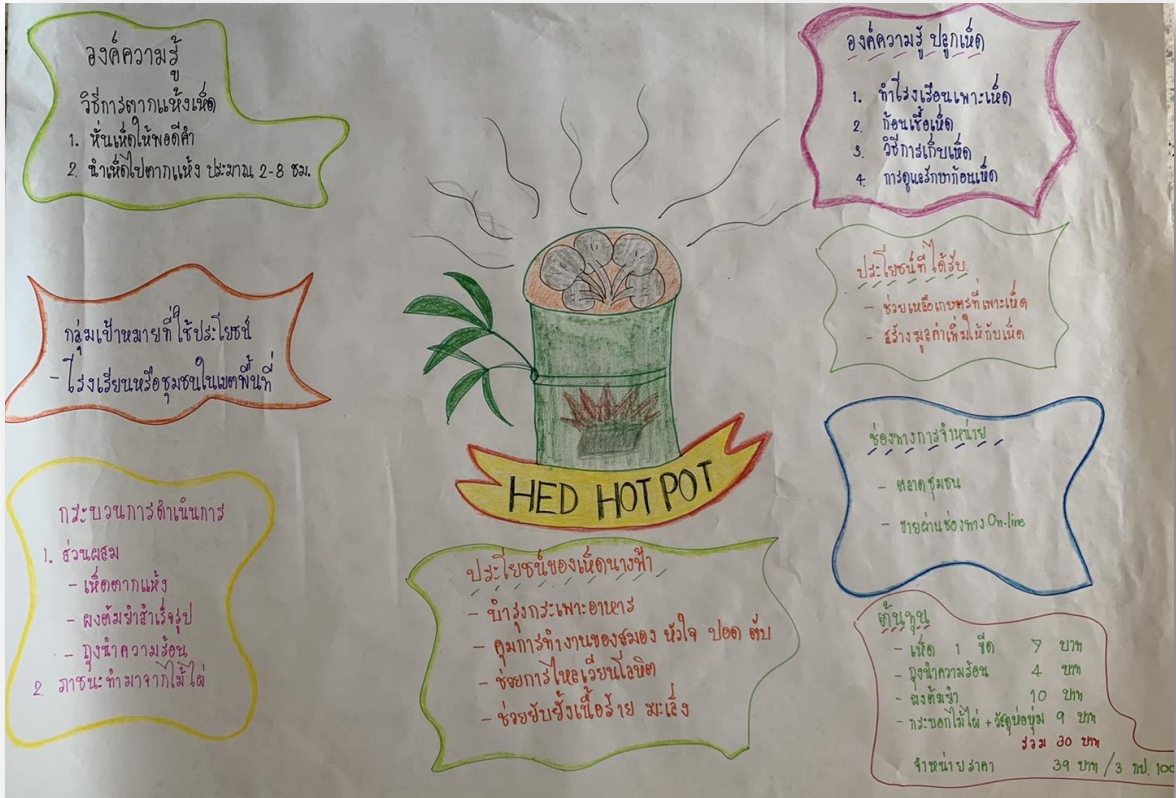 องค์ความรู้
วิธีการตากแห้งเห็ด
1. หั่นเห็ดให้พอดีคำ
2. นำเห็ดไปตากแห้ง ประมาณ 2-8 ชม.
กลุ่มเป้าหมายที่ใช้ประโยชน์
- โรงเรียนหรือชุมชนในเขตพื้นที่
กระบวนการดำเนินการ
1. ส่วนผสม
- เห็ดตากแห้ง
- ผงต้มยำสำเร็จรูป
- ถุงนำความร้อน
2. ภาชนะทำมาจากไม้ไผ่
HED HOT POT
ประโยชน์ของเห็ดนางฟ้า
- บำรุงกระเพาะอาหาร
- คุมการทำงานของสมอง หัวใจ ปอด ตับ
- ช่วยการไหลเวียนโลหิต
- ช่วยยับยั้งเนื้อร้าย มะเร็ง
องค์ความรู้ ปลูกเห็ด
1. ทำโรงเรือนเพาะเห็ด
2. ก้อนเชื้อเห็ด
3. วิธีการเก็บเห็ด
4. การดูแลรักษาก้อนเห็ด
ประโยชน์ที่ได้รับ
- ช่วยเหลือเกษตรที่เพาะเห็ด
- สร้างมูลค่าเพิ่มให้กับเห็ด
ช่องทางการจำหน่าย
- ตลาดชุมชน
- ขายผ่านช่องทาง On-line
ต้นทุน
- เห็ด 1 ขีด 7 บาท
- ถุงนำความร้อน 4 บาท
- ผงต้มยำ 10 บาท
- กระบอกไม้ไผ่ + วัสดุห่อหุ้ม 9 บาท
รวม 30 บาท
จำหน่ายราคา 39 บาท / 3 กป. 100